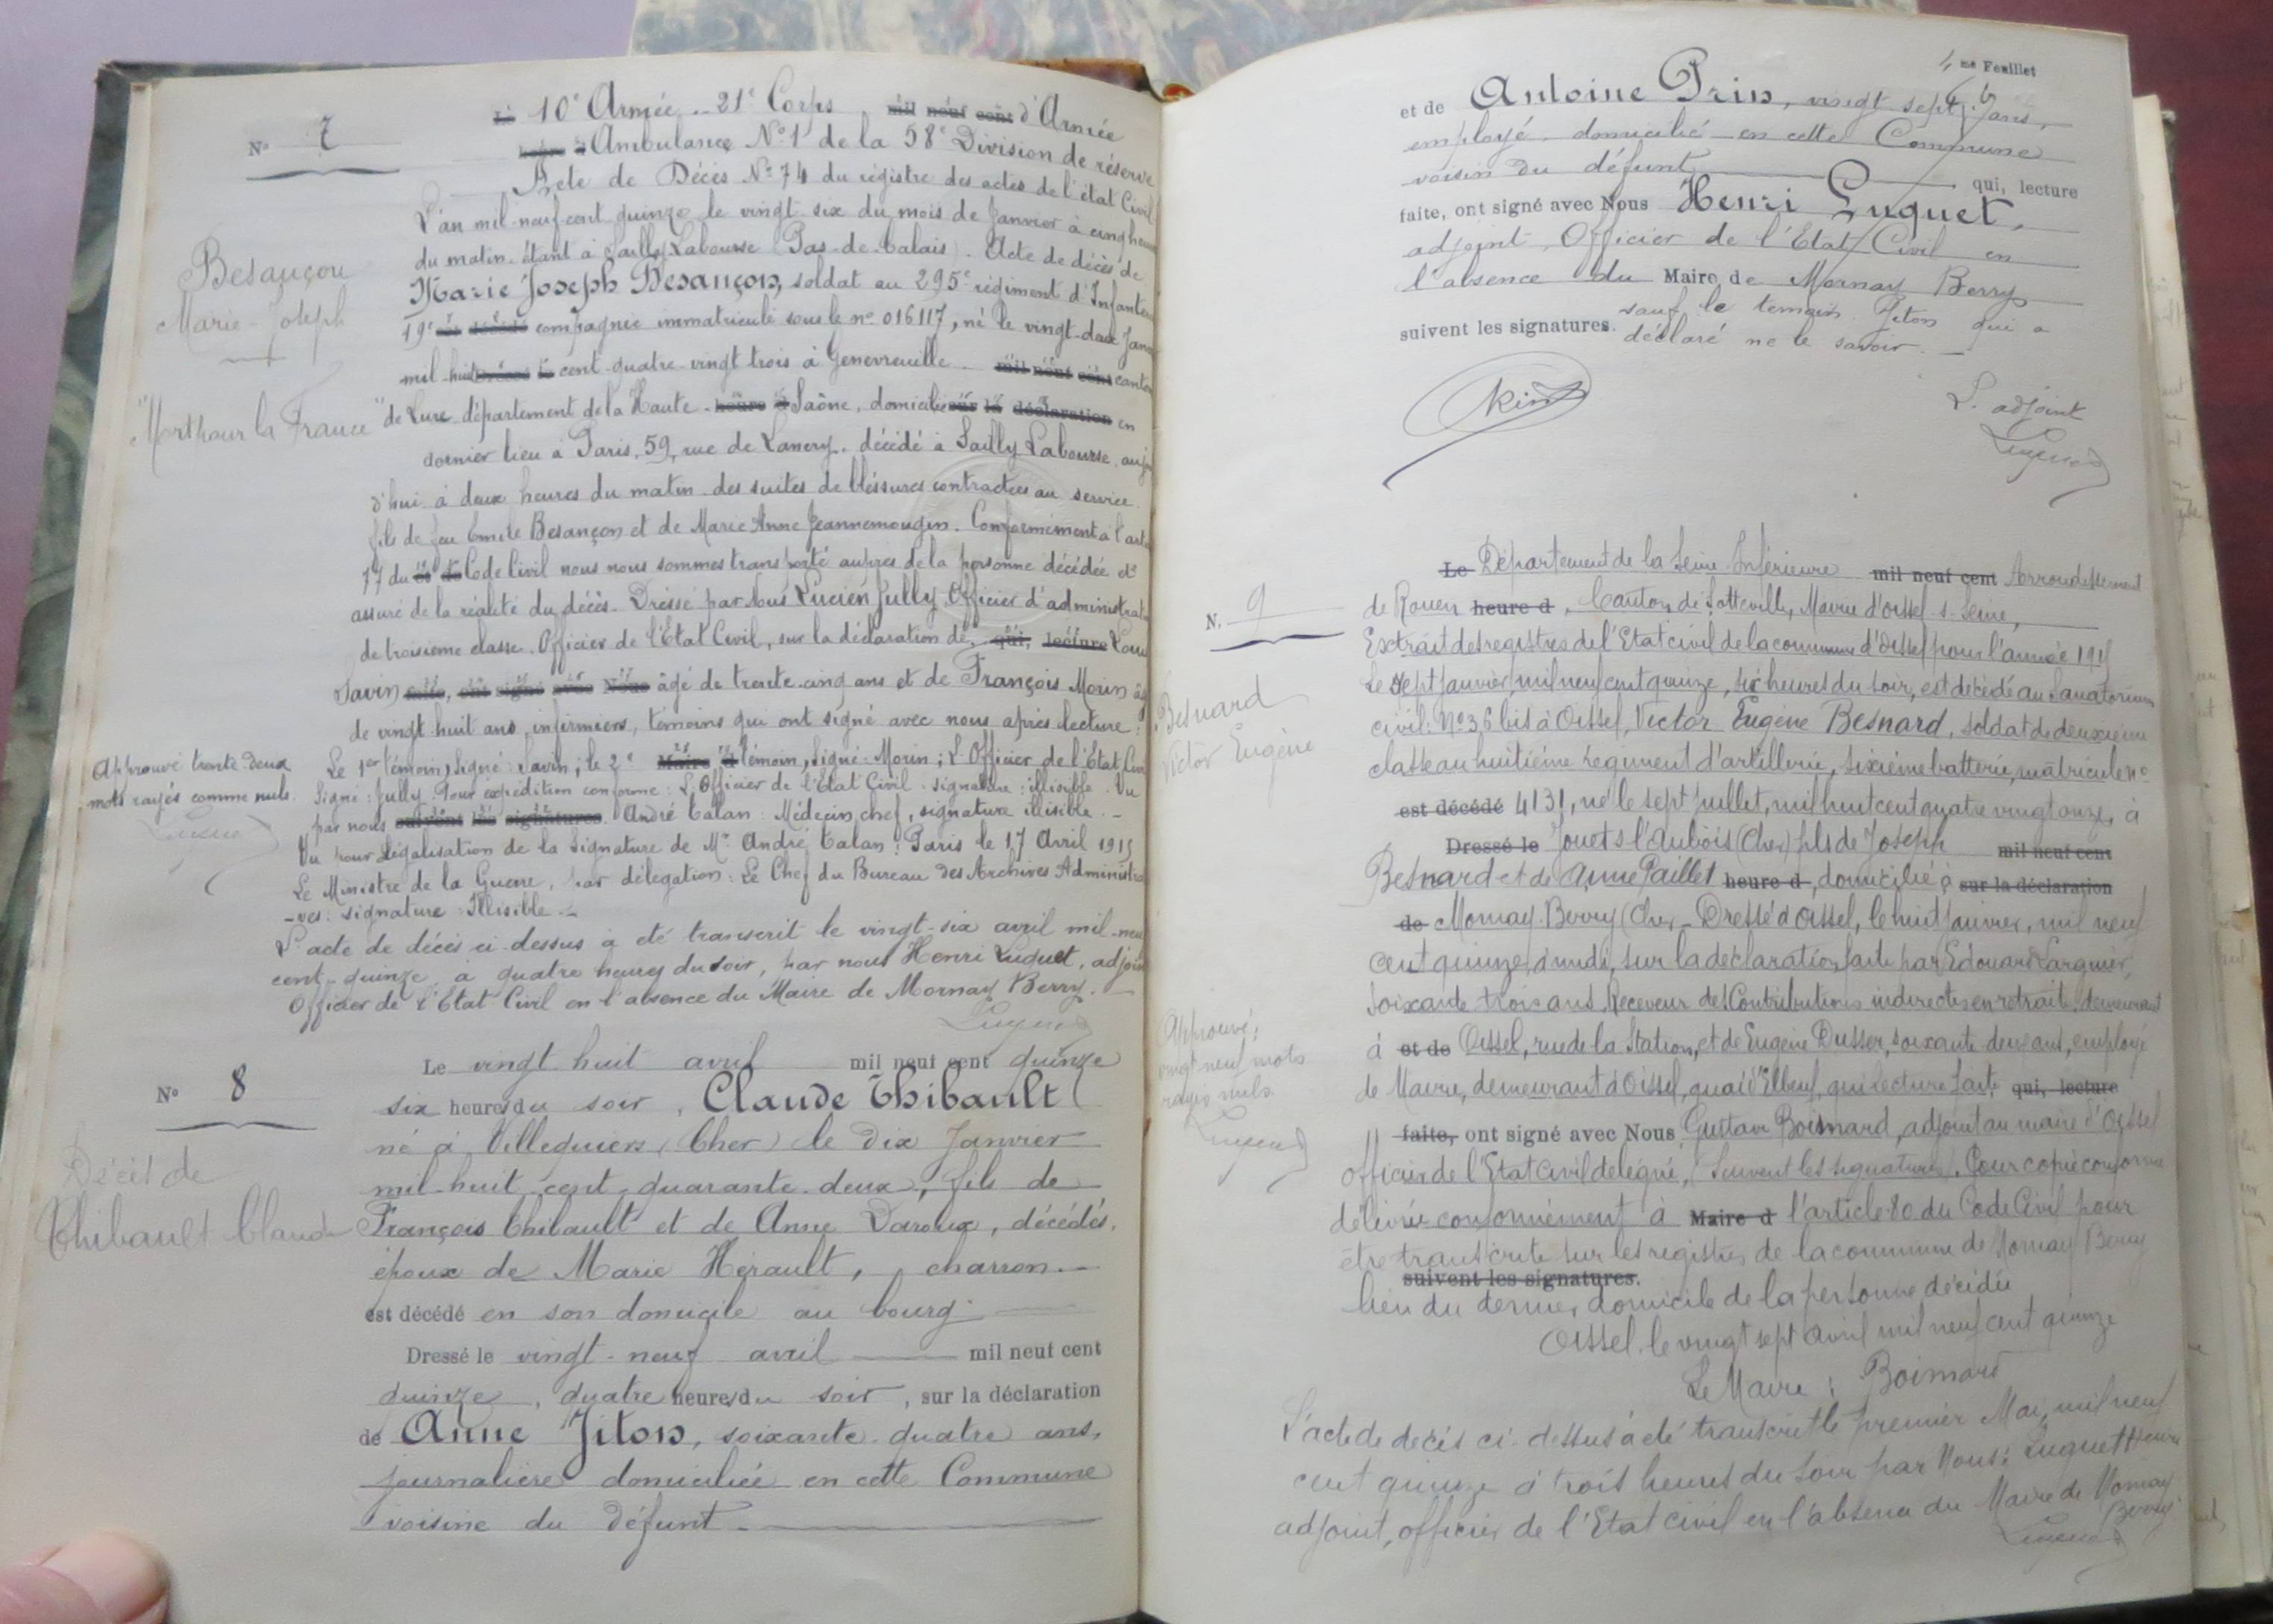 N° 7
~~Le~~ 10e Armée _ 21e Corps ~~mil neuf cent~~ d'Armée
~~heure d~~ Ambulance N° 1 de la 58e Division de réserve
Acte de Décès N° 74 du régistre des actes de l'état Civil
L'an mil-neuf-cent quinze le vingt-six du mois de Janvier à cinq heures
du matin, étant à Sailly Labourse (Pas-de-Calais). Acte de décès de
Besançon
Marie-Joseph
"Mort pour la France"
Marie Joseph Besançon, soldat au 295e régiment d'Infanterie
19e ~~est décédé~~ compagnie immatriculé sous le n° 016117, né le vingt-deux Janv
mil-huit ~~Dressé le~~ cent-quatre-vingt trois à Genevreuille _ ~~mil neuf cent~~ canton
de Lure département de la Haute-~~heure d~~ Saône, domicilié ~~sur la déclaration~~ en
dernier lieu à Paris, 59, rue de Lancry, décédé à Sailly Labourse, aujour
d'hui à deux heures du matin des suites de bléssures contractées au service
fils de feu Emile Besançon et de Marie Anne Jeannemougin. Conformément à l'article
77 du ~~et de~~ Code Civil nous nous sommes transporté auprès de la personne décédée et
assuré de la réalité du décès. Dressé par Nous Lucien Jully, Officier d'administrat
de troisième classe. Officier de l'Etat Civil, sur la déclaration de ~~qui, lecture~~ Louis
Savin ~~faite, ont signé avec Nous~~ âgé de trente-cinq ans et de François Morin âgé
de vingt-huit ans, infirmiers, témoins qui ont signé avec nous après lecture:
Approuvé trente-deux
mots rayés comme nuls.
Luquet
Le 1er témoin, signé: Savin; le 2e ~~Maire d~~ témoin, signé: Morin; L'Officier de l'Etat Civil
Signé: Jully. Pour expédition conforme: L'Officier de l'Etat Civil: signature: illisible. Vu
par nous ~~suivent les signatures.~~ André Calan: Médecin chef, signature illisible. _
Vu pour légalisation de la signature de Mr André Calan: Paris le 17 Avril 1915
Le Ministre de la Guerre, par délégation: Le Chef du Bureau des Archives Administra
-ves: signature: Illisible. _
L'acte de décès ci-dessus a été transcrit le vingt-six avril mil-neuf
cent-quinze à quatre heures du soir, par nous Henri Luquet, adjoint
Officier de l'Etat Civil en l'absence du Maire de Mornay Berry. _
Luquet
N° 8
Décès de
Thibault Claude
Le vingt huit avril mil neuf cent quinze
six heures du soir, Claude Thibault
né à Villequiers (Cher) le dix Janvier
mil-huit-cent-quarante-deux, fils de
François Thibault et de Anne Daroux, décédés,
époux de Marie Hérault, charron. _
est décédé en son domicile au bourg
Dressé le vingt-neuf avril mil neuf cent
quinze, quatre heures du soir, sur la déclaration
de Anne Jiton, soixante-quatre ans,
journalière domiciliée en cette Commune
voisine du défunt.
4 me Feuillet
et de Antoine Prin, vingt sept ans,
employé, domicilié en cette Commune
voisin du défunt qui, lecture
faite, ont signé avec Nous Henri Luquet,
adjoint, Officier de l'Etat Civil en
l'absence du Maire de Mornay Berry
suivent les signatures. sauf le témoin Jiton qui a
déclaré ne le savoir. _
Prin
L'adjoint
Luquet
N. 9
~~Le~~ Département de la Seine Inférieure ~~mil neuf cent~~ Arrondissement
de Rouen ~~heure d~~, Canton de Sotteville, Mairie d'Oissel-s-Seine,
Extrait des registres de l'Etat civil de la commune d'Oissel pour l'année 1915
Besnard
Victor Eugène
Le sept janvier, mil neuf cent quinze, six heures du soir, est décédé au Sanatorium
civil: N° 36 bis à Oissel, Victor Eugène Besnard, soldat de deuxième
classe au huitième régiment d'artillerie, sixième batterie, matricule n°
~~est décédé~~ 4131, né le sept juillet, mil huit cent quatre vingt onze, à
~~Dressé le~~ Jouet s l'Aubois (Cher) fils de Joseph ~~mil neuf cent~~
Besnard et de Anne Paillet ~~heure d~~, domicilié à ~~sur la déclaration~~
~~de~~ Mornay-Berry (Cher _ Dressé à Oissel, le huit janvier, mil neuf
cent quinze, à midi, sur la déclaration faite par Edouard Larguier,
soixante trois ans, Receveur des Contributions indirectes en retraite, demeurant
Approuvé:
vingt neuf mots
rayés nuls.
Luquet
à ~~et de~~ Oissel, rue de la Station, et de Eugène Dusser, soixante deux ans, employé
de Mairie, demeurant à Oissel, quai d'Elbeuf, qui lecture faite, ~~qui, lecture~~
~~faite,~~ ont signé avec Nous Gustave Boismard, adjoint au maire d'Oissel
officier de l'Etat Civil délégué, (Suivent les signatures). Pour copie conforme
délivrée conformément à ~~Maire d~~ l'article 80 du Code Civil pour
être transcrite sur les registres de la commune de Mornay Berry
~~suivent les signatures.~~
lieu du dernier domicile de la personne décédée
Oissel, le vingt sept avril mil neuf cent quinze
Le Maire: Boismard
L'acte de décès ci-dessus a été transcrit le premier Mai, mil neuf
cent quinze à trois heures du soir par Nous: Luquet Henri
adjoint, officier de l'Etat civil en l'absence du Maire de Mornay
Berry.
Luquet